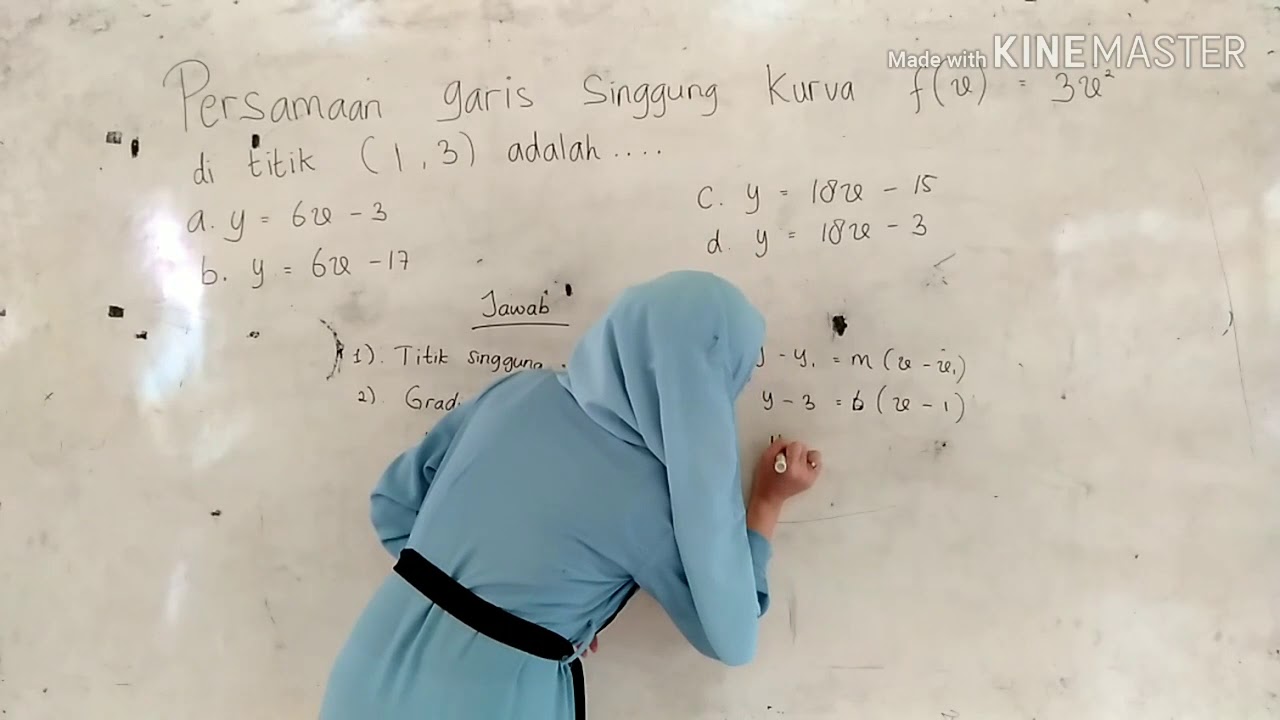 Made with KINEMASTER
Persamaan garis Singgung Kurva f(x) = 3x²
di titik (1, 3) adalah ....
a. y = 6x - 3
b. y = 6x - 17
c. y = 18x - 15
d. y = 18x - 3
Jawab
1). Titik Singgung
2). Grad
- y₁ = m (x - x₁)
y - 3 = 6 (x - 1)